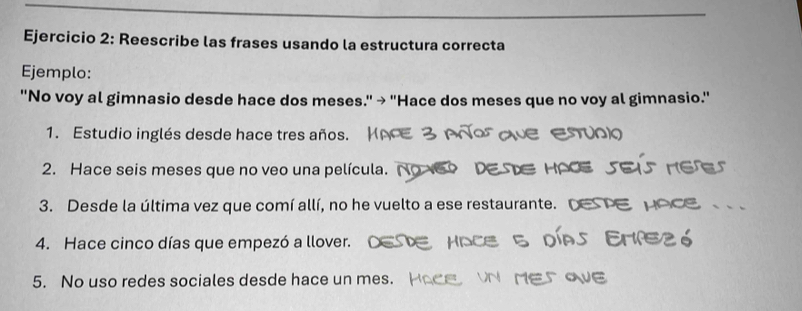 Ejercicio 2: Reescribe las frases usando la estructura correcta
Ejemplo:
"No voy al gimnasio desde hace dos meses." → "Hace dos meses que no voy al gimnasio."
1. Estudio inglés desde hace tres años. HACE 3 AÑOS QUE ESTUDIO
2. Hace seis meses que no veo una película. NO VEO DESDE HACE SEÍS MESES
3. Desde la última vez que comí allí, no he vuelto a ese restaurante. DESDE HACE . . .
4. Hace cinco días que empezó a llover. DESDE HACE 5 DÍAS EMPEZÓ
5. No uso redes sociales desde hace un mes. HACE UN MES QUE